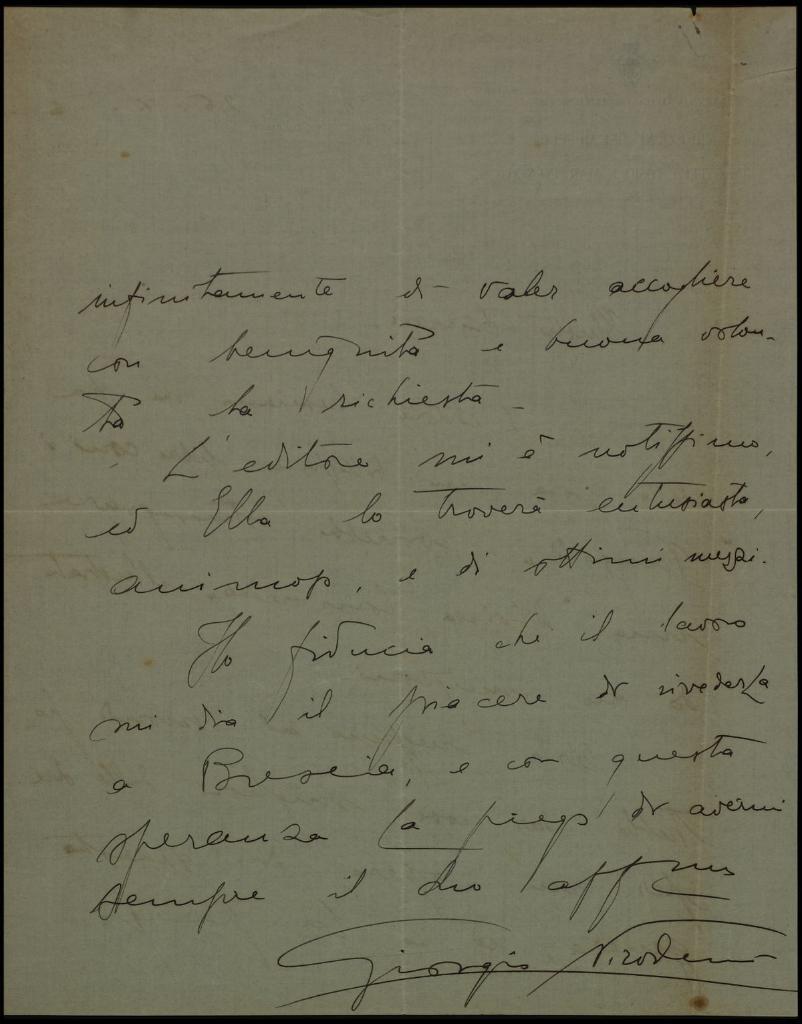 infinitamente di voler accogliere
con benignità e buona volon-
tà la richiesta.
L'editore mi è notissimo,
ed Ella lo troverà entusiasta,
animoso, e di ottimi mezzi.
Ho fiducia che il lavoro
mi dia il piacere di rivederLa
a Brescia, e con questa
speranza La prego di avermi
sempre il Suo affmo
Giorgio Nicodemi